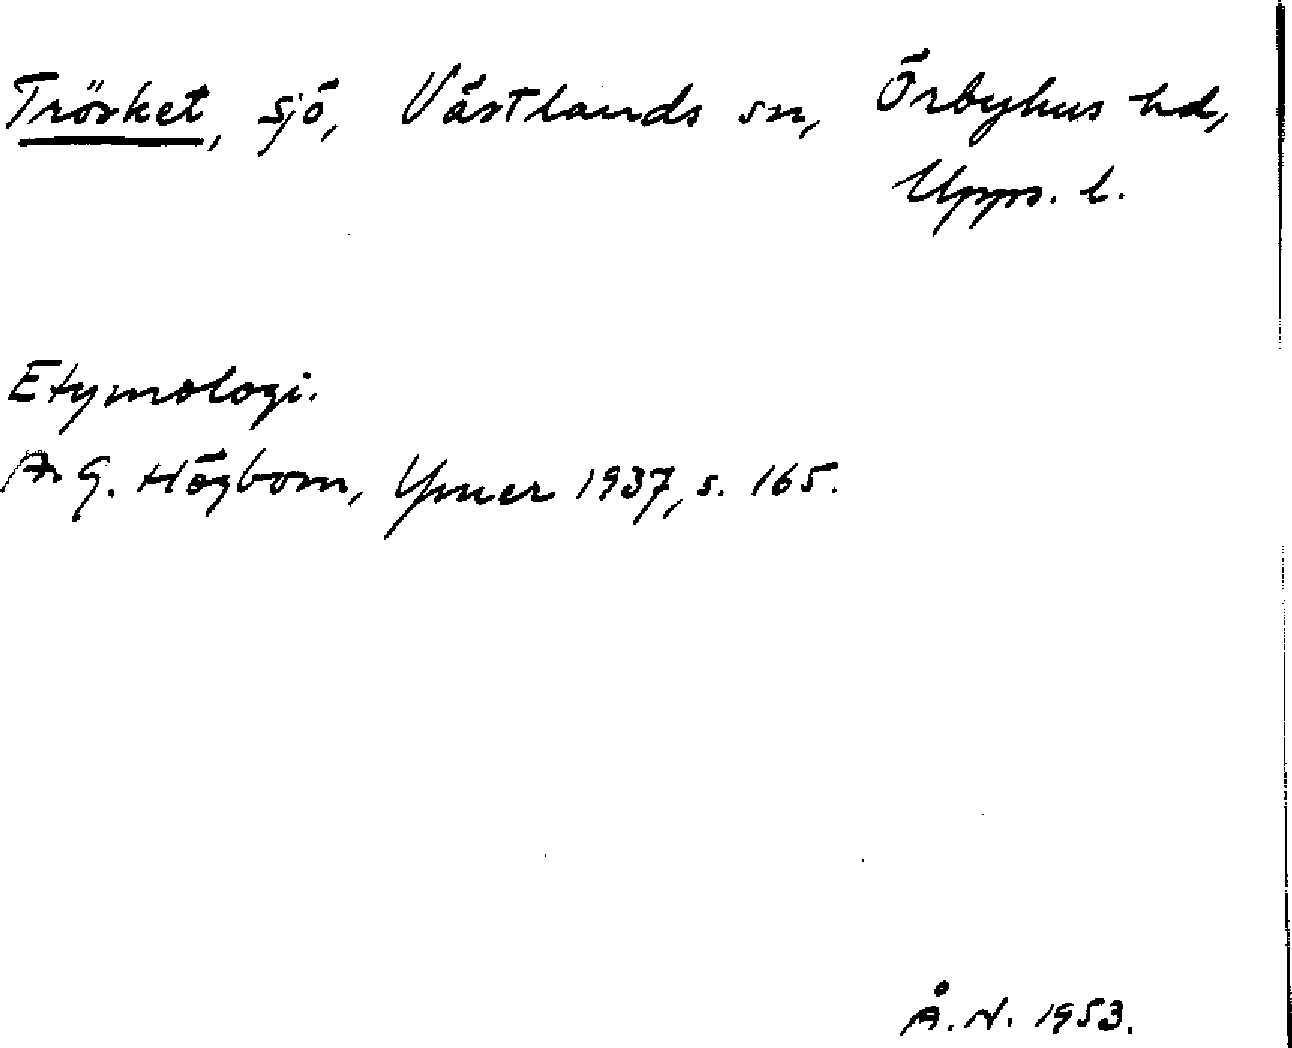 Trösket, sjö, Västlands sn, Örbyhus hd,
Upps. l.
Etymologi.
A. G. Högbom, Ymer 1937, s. 165.
Å. N. 1953.